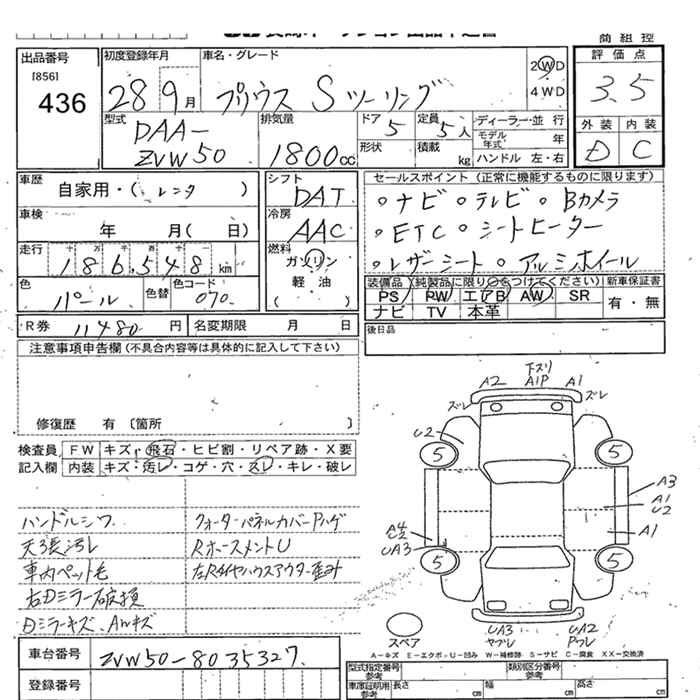 商 組 控
出品番号
[856]
436
初度登録年月
28年9月
車名・グレード
プリウス Sツーリング
2WD
4WD
評価点
3.5
外装 内装
D C
型式
DAA-
ZVW50
排気量
1800cc
ドア 5
定員 5人
形状
積載 kg
ディーラー・並 行
モデル年式 年
ハンドル 左・右
車歴
自家用・( レンタ )
車検
年 月( 日)
走行
十 万 千 百 十 一
186,548km
色
パール
色替
色コード
070
シフト
DAT
冷房
AAC
燃料
ガソリン
軽 油
( )
セールスポイント (正常に機能するものに限ります)
○ナビ ○テレビ ○Bカメラ
○ETC ○シートヒーター
○レザーシート ○アルミホイール
装備品 (純製品に限り○をつけてください)
PS PW エアB AW SR
ナビ TV 本革
新車保証書
有・無
R券 11480 円
名変期限 月 日
後日品
注意事項申告欄 (不具合内容等は具体的に記入して下さい)
修復歴 有 〔箇所 〕
検査員
記入欄
FW キズ・飛石・ヒビ割・リペア跡・X要
内装 キズ・汚レ・コゲ・穴・スレ・キレ・破レ
ハンドルシワ
天張汚レ
車内ペット毛
右Dミラー破損
Dミラーキズ、AWキズ
クォーターパネルカバーPハゲ
RホースメントU
左Rタイヤハウスアウター歪み
下ズリ
A2 A1P A1
ズレ ズレ
U2
5 5
A3
A1
U2
A1
A4
C2
UA3
5 5
スペア
UA3
ヤブレ
UA2
Pフレ
A－キズ E－エクボ U－凹み W－補修跡 S－サビ C－腐食 XX－交換済
車台番号
ZVW50-8035327
登録番号
型式指定番号
参考
類別区分番号
参考
車庫証明用
参考
長さ cm
幅 cm
高さ cm